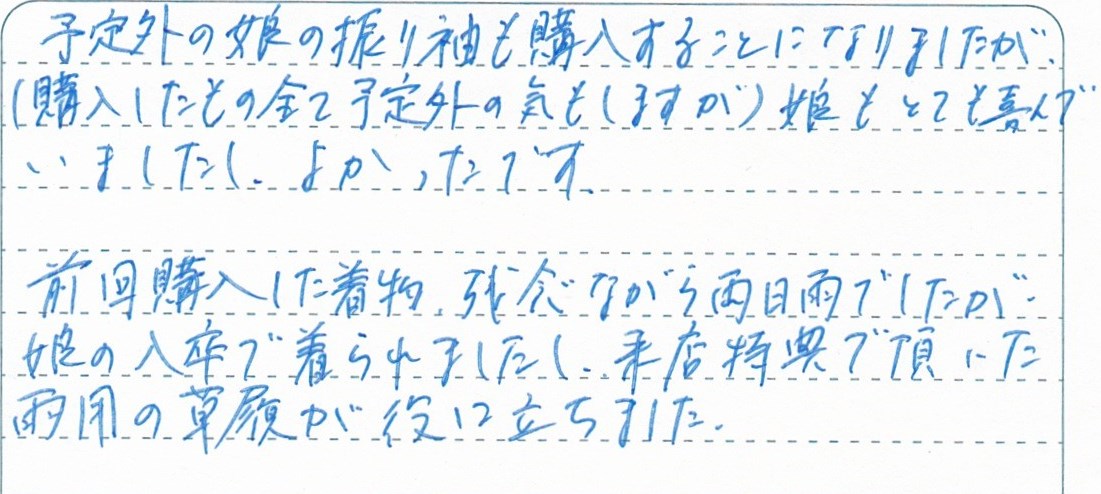 予定外の娘の振り袖も購入することになりましたが、
(購入したもの全て予定外の気もしますが)娘もとても喜んで
いましたし、よかったです。
前回購入した着物、残念ながら両日雨でしたが、
娘の入卒で着られましたし、来店特典で頂いた
雨用の草履が役に立ちました。